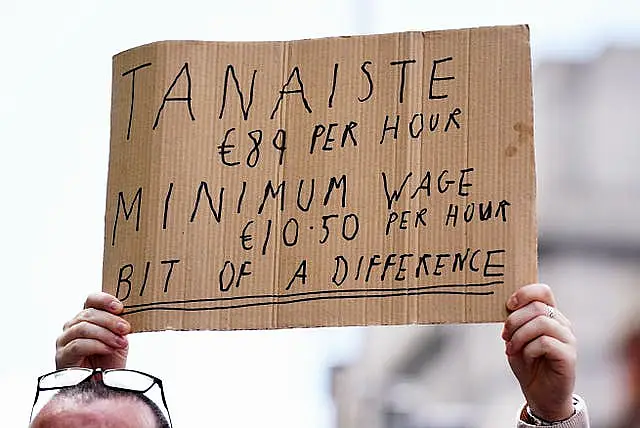 TANAISTE
€89 PER HOUR
MINIMUM WAGE
€10.50 PER HOUR
BIT OF A DIFFERENCE